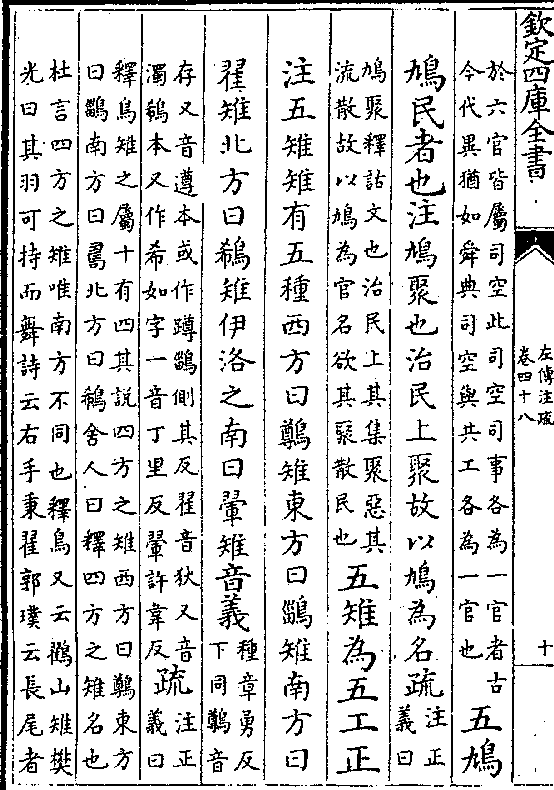 欽定四庫全書
左傳注疏
卷四十八
十
於六官皆屬司空此司空司事各為一官者古
今代異猶如舜典司空與共工各為一官也
五鳩
鳩民者也注鳩聚也治民上聚故以鳩為名疏
注正
義曰
鳩聚釋詁文也治民上其集聚惡其
流散故以鳩為官名欲其聚散民也
五雉為五工正
注五雉雉有五種西方曰鷷雉東方曰鶅雉南方曰
翟雉北方曰鵗雉伊洛之南曰翬雉音義
種章勇反
下同鷷音
存又音遵本或作蹲鶅側其反翟音狄又音
濁鵗本又作希如字一音丁里反翬許韋反
疏
注正
義曰
釋鳥雉之屬十有四其說四方之雉西方曰鷷東方
曰鶅南方曰𠷎北方曰鵗舍人曰釋四方之雉名也
杜言四方之雉唯南方不同也釋鳥又云鸐山雉樊
光曰其羽可持而舞詩云右手秉翟郭璞云長尾者